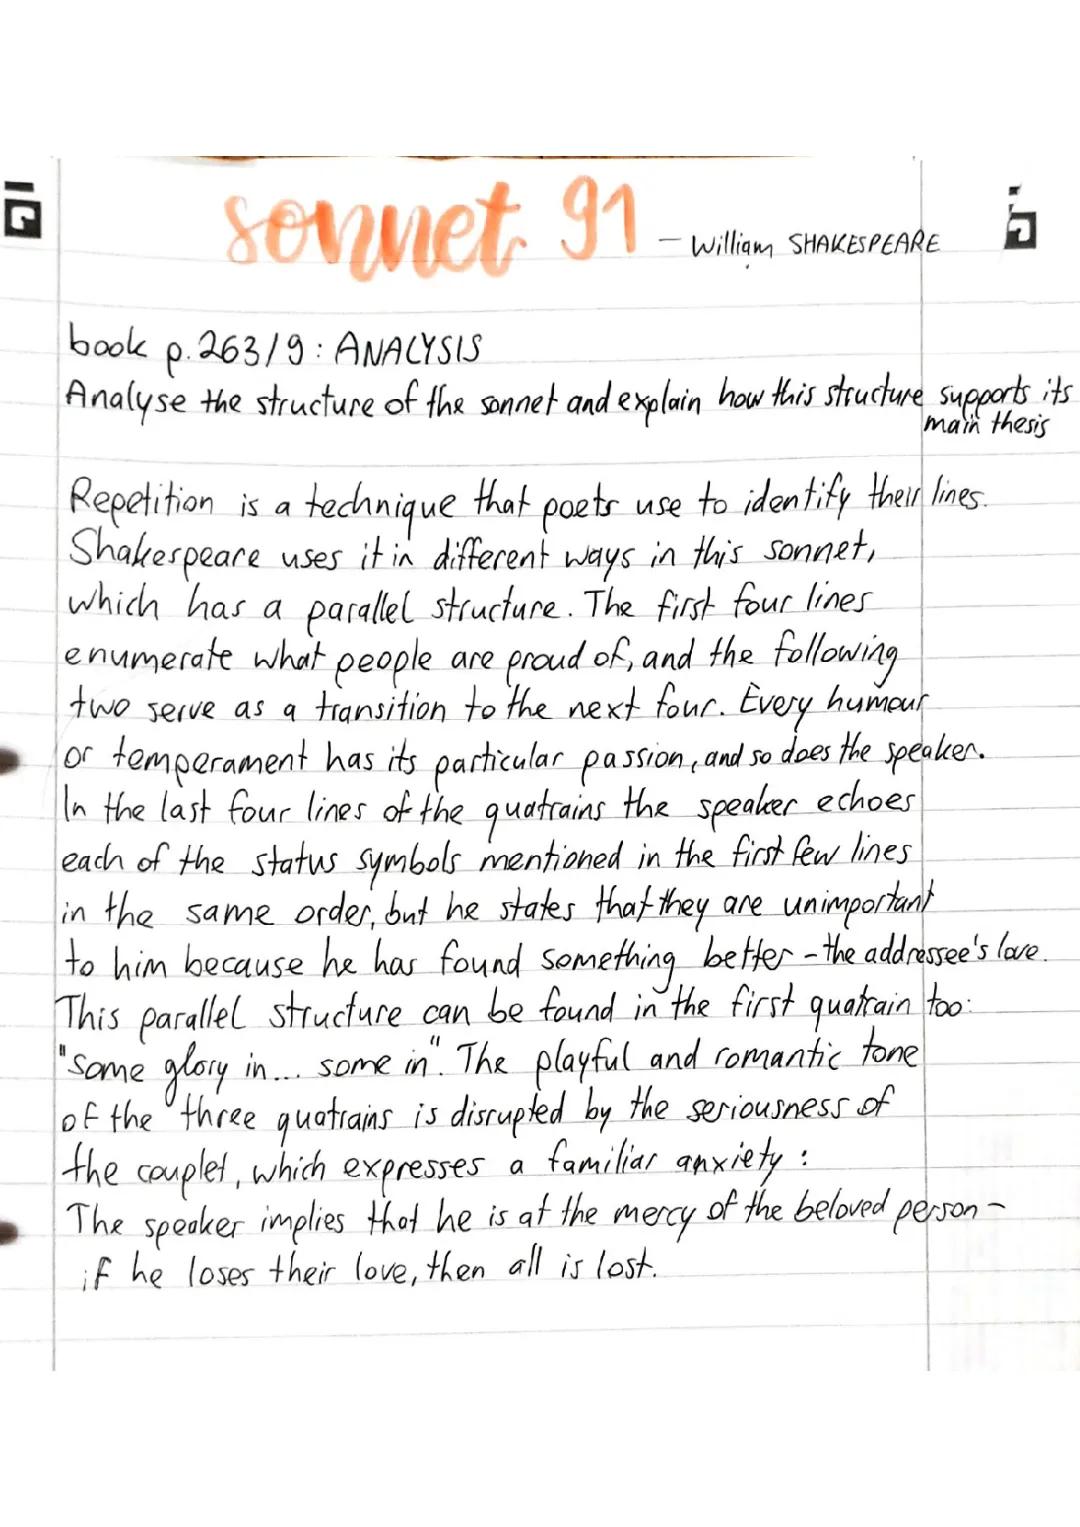 sonnet 91 - William SHAKESPEARE
book p. 263/9: ANALYSIS
Analyse the structure of the sonnet and explain how this structure supports its
main thesis
Repetition is a technique that poets use to identify their lines.
Shakespeare uses it in different ways in this sonnet,
which has a parallel structure. The first four lines
enumerate what people are proud of, and the following
two serve as a transition to the next four. Every humour
or temperament has its particular passion, and so does the speaker.
In the last four lines of the quatrains the speaker echoes
each of the status symbols mentioned in the first few lines
in the same order, but he states that they are unimportant
to him because he has found something better - the addressee's love.
This parallel structure can be found in the first quatrain too:
"Some glory in... some in". The playful and romantic tone
of the three quatrains is disrupted by the seriousness of
the couplet, which expresses a familiar anxiety:
The speaker implies that he is at the mercy of the beloved person -
if he loses their love, then all is lost.